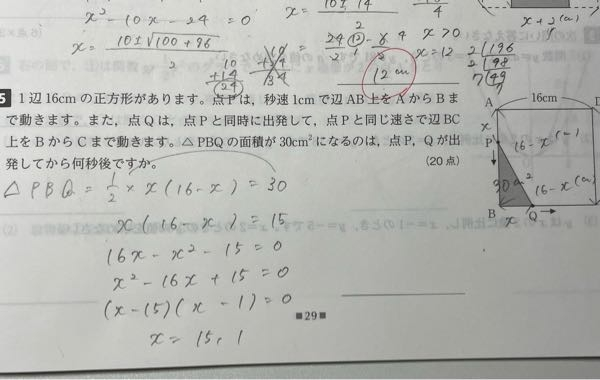 x² - 10x - 24 = 0
x = 10±√100+96
2
10
+14
24
x = 10±14
2
24
2
x > 0
x = 12
12 cm
2 196
2 98
7 49
7
x+2
5 1辺16cmの正方形があります。点Pは，秒速1cmで辺AB上をAからBま
で動きます。また，点Qは，点Pと同時に出発して，点Pと同じ速さで辺BC
上をBからCまで動きます。△PBQの面積が30cm²になるのは，点P，Qが出
発してから何秒後ですか。
(20点)
△PBQ = 1/2 × x(16-x) = 30
x(16-x) = 15
16x - x² - 15 = 0
x² - 16x + 15 = 0
(x-15)(x-1) = 0
x = 15, 1
A 16cm D
x
P
16-x
30cm²
16-x
B x Q
■29■